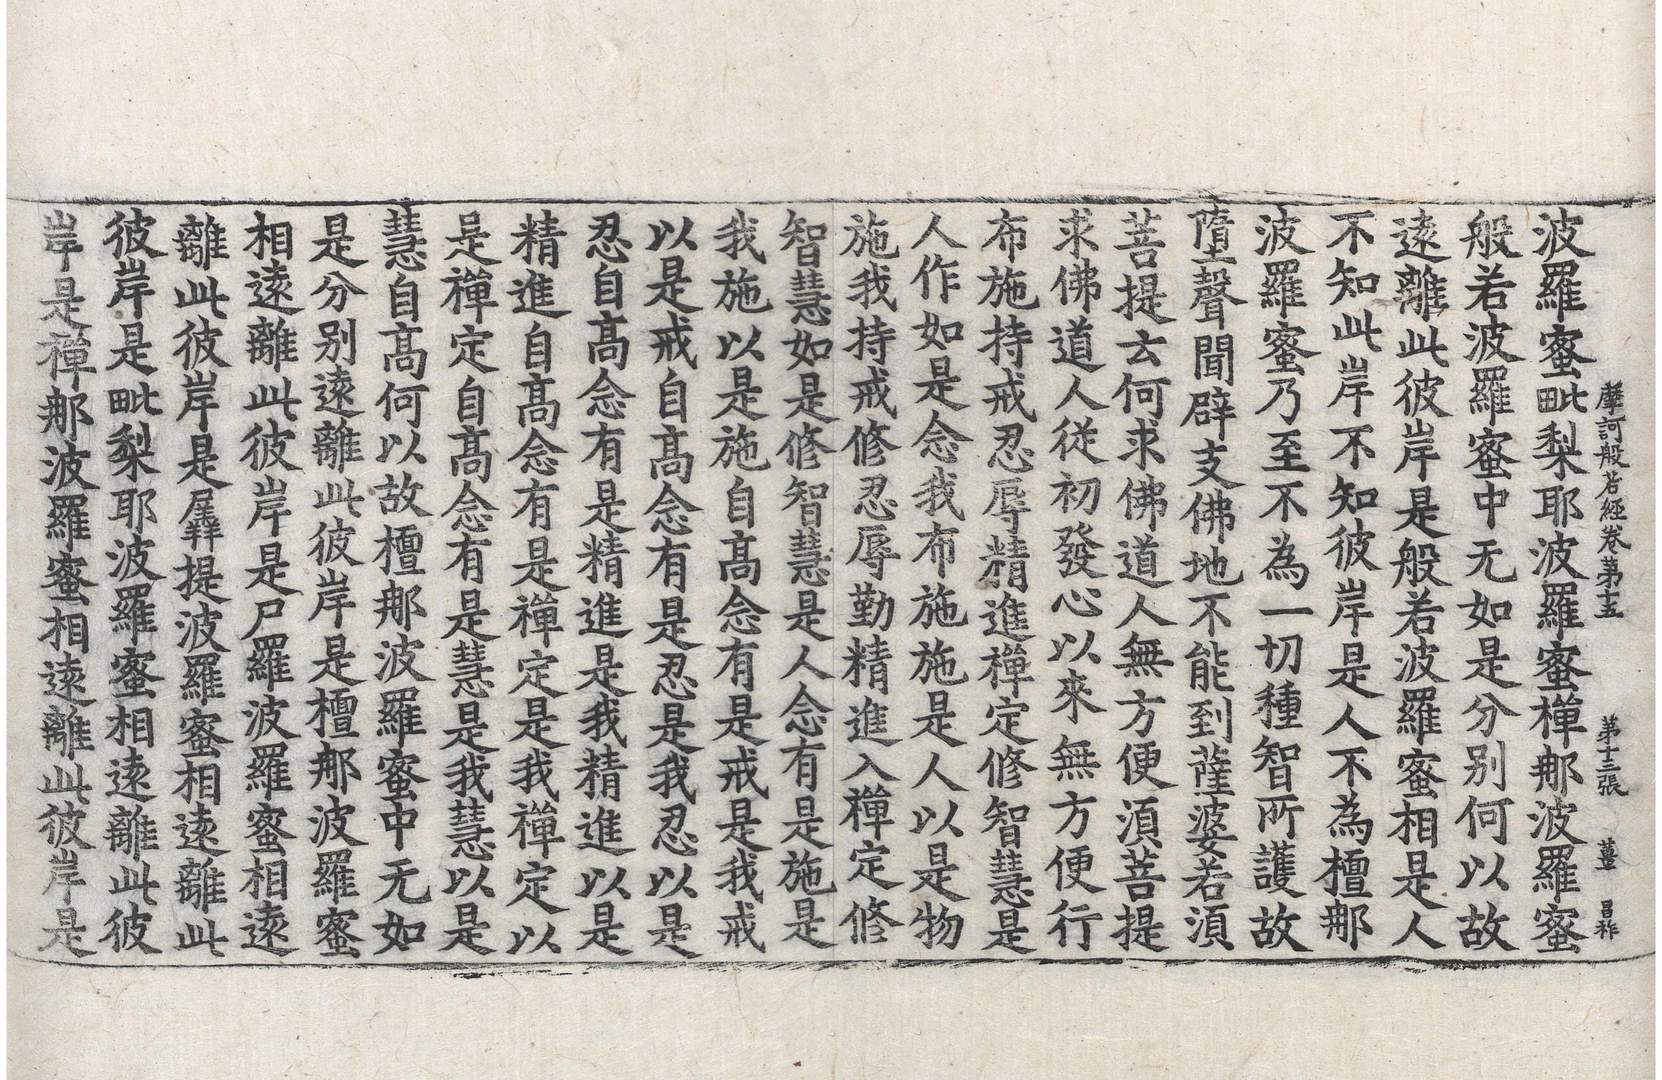 摩訶般若經卷第十五　第十三張　薑　昌祚
波羅蜜毗梨耶波羅蜜禪那波羅蜜
般若波羅蜜中无如是分別何以故
遠離此彼岸是般若波羅蜜相是人
不知此岸不知彼岸是人不為檀那
波羅蜜乃至不為一切種智所護故
墮聲聞辟支佛地不能到薩婆若須
菩提云何求佛道人無方便須菩提
求佛道人從初發心以來無方便行
布施持戒忍辱精進禪定修智慧是
人作如是念我布施施是人以是物
施我持戒修忍辱勤精進入禪定修
智慧如是修智慧是人念有是施是
我施以是施自高念有是戒是我戒
以是戒自高念有是忍是我忍以是
忍自高念有是精進是我精進以是
精進自高念有是禪定是我禪定以
是禪定自高念有是慧是我慧以是
慧自高何以故檀那波羅蜜中无如
是分別遠離此彼岸是檀那波羅蜜
相遠離此彼岸是尸羅波羅蜜相遠
離此彼岸是羼提波羅蜜相遠離此
彼岸是毗梨耶波羅蜜相遠離此彼
岸是禪那波羅蜜相遠離此彼岸是